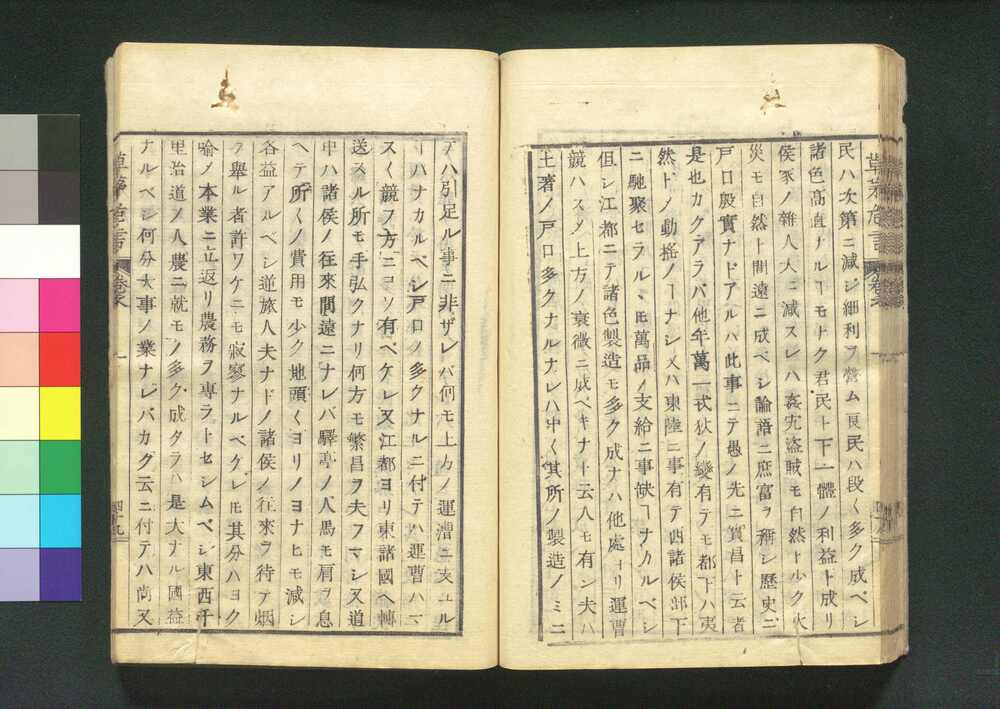 民ハ次第ニ減シ細利ヲ營ム良民ハ段〱多ク成ベシ
諸色高直ナルヿモトク君民ト下一體ノ利益ト成リ
侯家ノ雜人大ニ減スレハ姦宄盗賊モ自然ト少ク火
災モ自然ト間遠ニ成ベシ論語ニ庶富ヲ稱シ歷史ニ
戸口殷實ナドアルハ此事ニテ愚ノ先ニ實昌ト云者
是也カクアラバ他年萬一戎狄ノ變有テモ都下ハ夷
然トノ動搖ノヿナシ又ハ東陸ニ事有テ西諸侯部下
ニ馳聚セラルヽモ萬品ノ支給ニ事缺ヿナカルベシ
但シ江都ニテ諸色製造モ多ク成ナハ他處ヨリ運曹
競ハスノ上方ノ衰微ニ成ベキナト云人モ有ン夫ハ
土著ノ戸口多クナルナレハ中〱其所ノ製造ノミニ
テハ引足ル事ニ非ザレバ何モ上方ノ運漕ニ支ユル
ヿハナカルベシ戸口ノ多クナルニ付テハ運曹ハマ
スく競フ方ニコソ有ベケレ又江都ヨリ東諸國ヘ轉
送スル所モ手弘クナリ何方モ繁昌ヲ夫フマシ又道
中ハ諸侯ノ往來間遠ニナレバ驛亭ノ人馬モ肩ヲ息
ヘテ所〱ノ費用モ少ク地頭〱ヨリノヨナヒモ減シ
各益アルベシ逆旅人夫ナドノ諸侯ノ往來ヲ待テ烟
ヲ舉ル者許ワケニモ寂寥ナルベケレモ其分ハヨク
喩ノ本業ニ立返リ農務ヲ專ラトセシムベシ東西千
里沿道ノ人農ニ就モノ多ク成タラハ是大ナル國益
ナルベシ何分大事ノ業ナレバカク云ニ付テハ尚又
草茅危言
卷
四十九